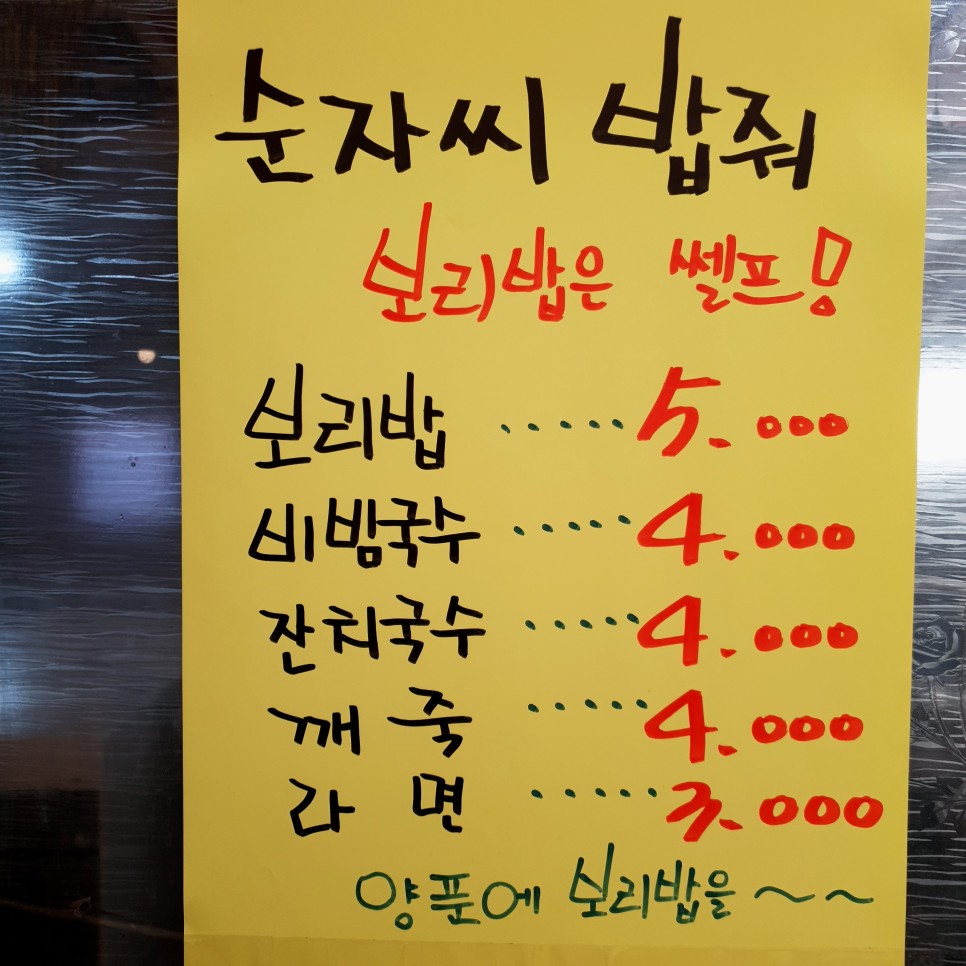 순자씨 밥줘
보리밥은 쎌프!
보리밥 ..... 5.000
비빔국수 ..... 4.000
잔치국수 ..... 4.000
깨죽 ..... 4.000
라면 ..... 3.000
양푼에 보리밥을 ~~